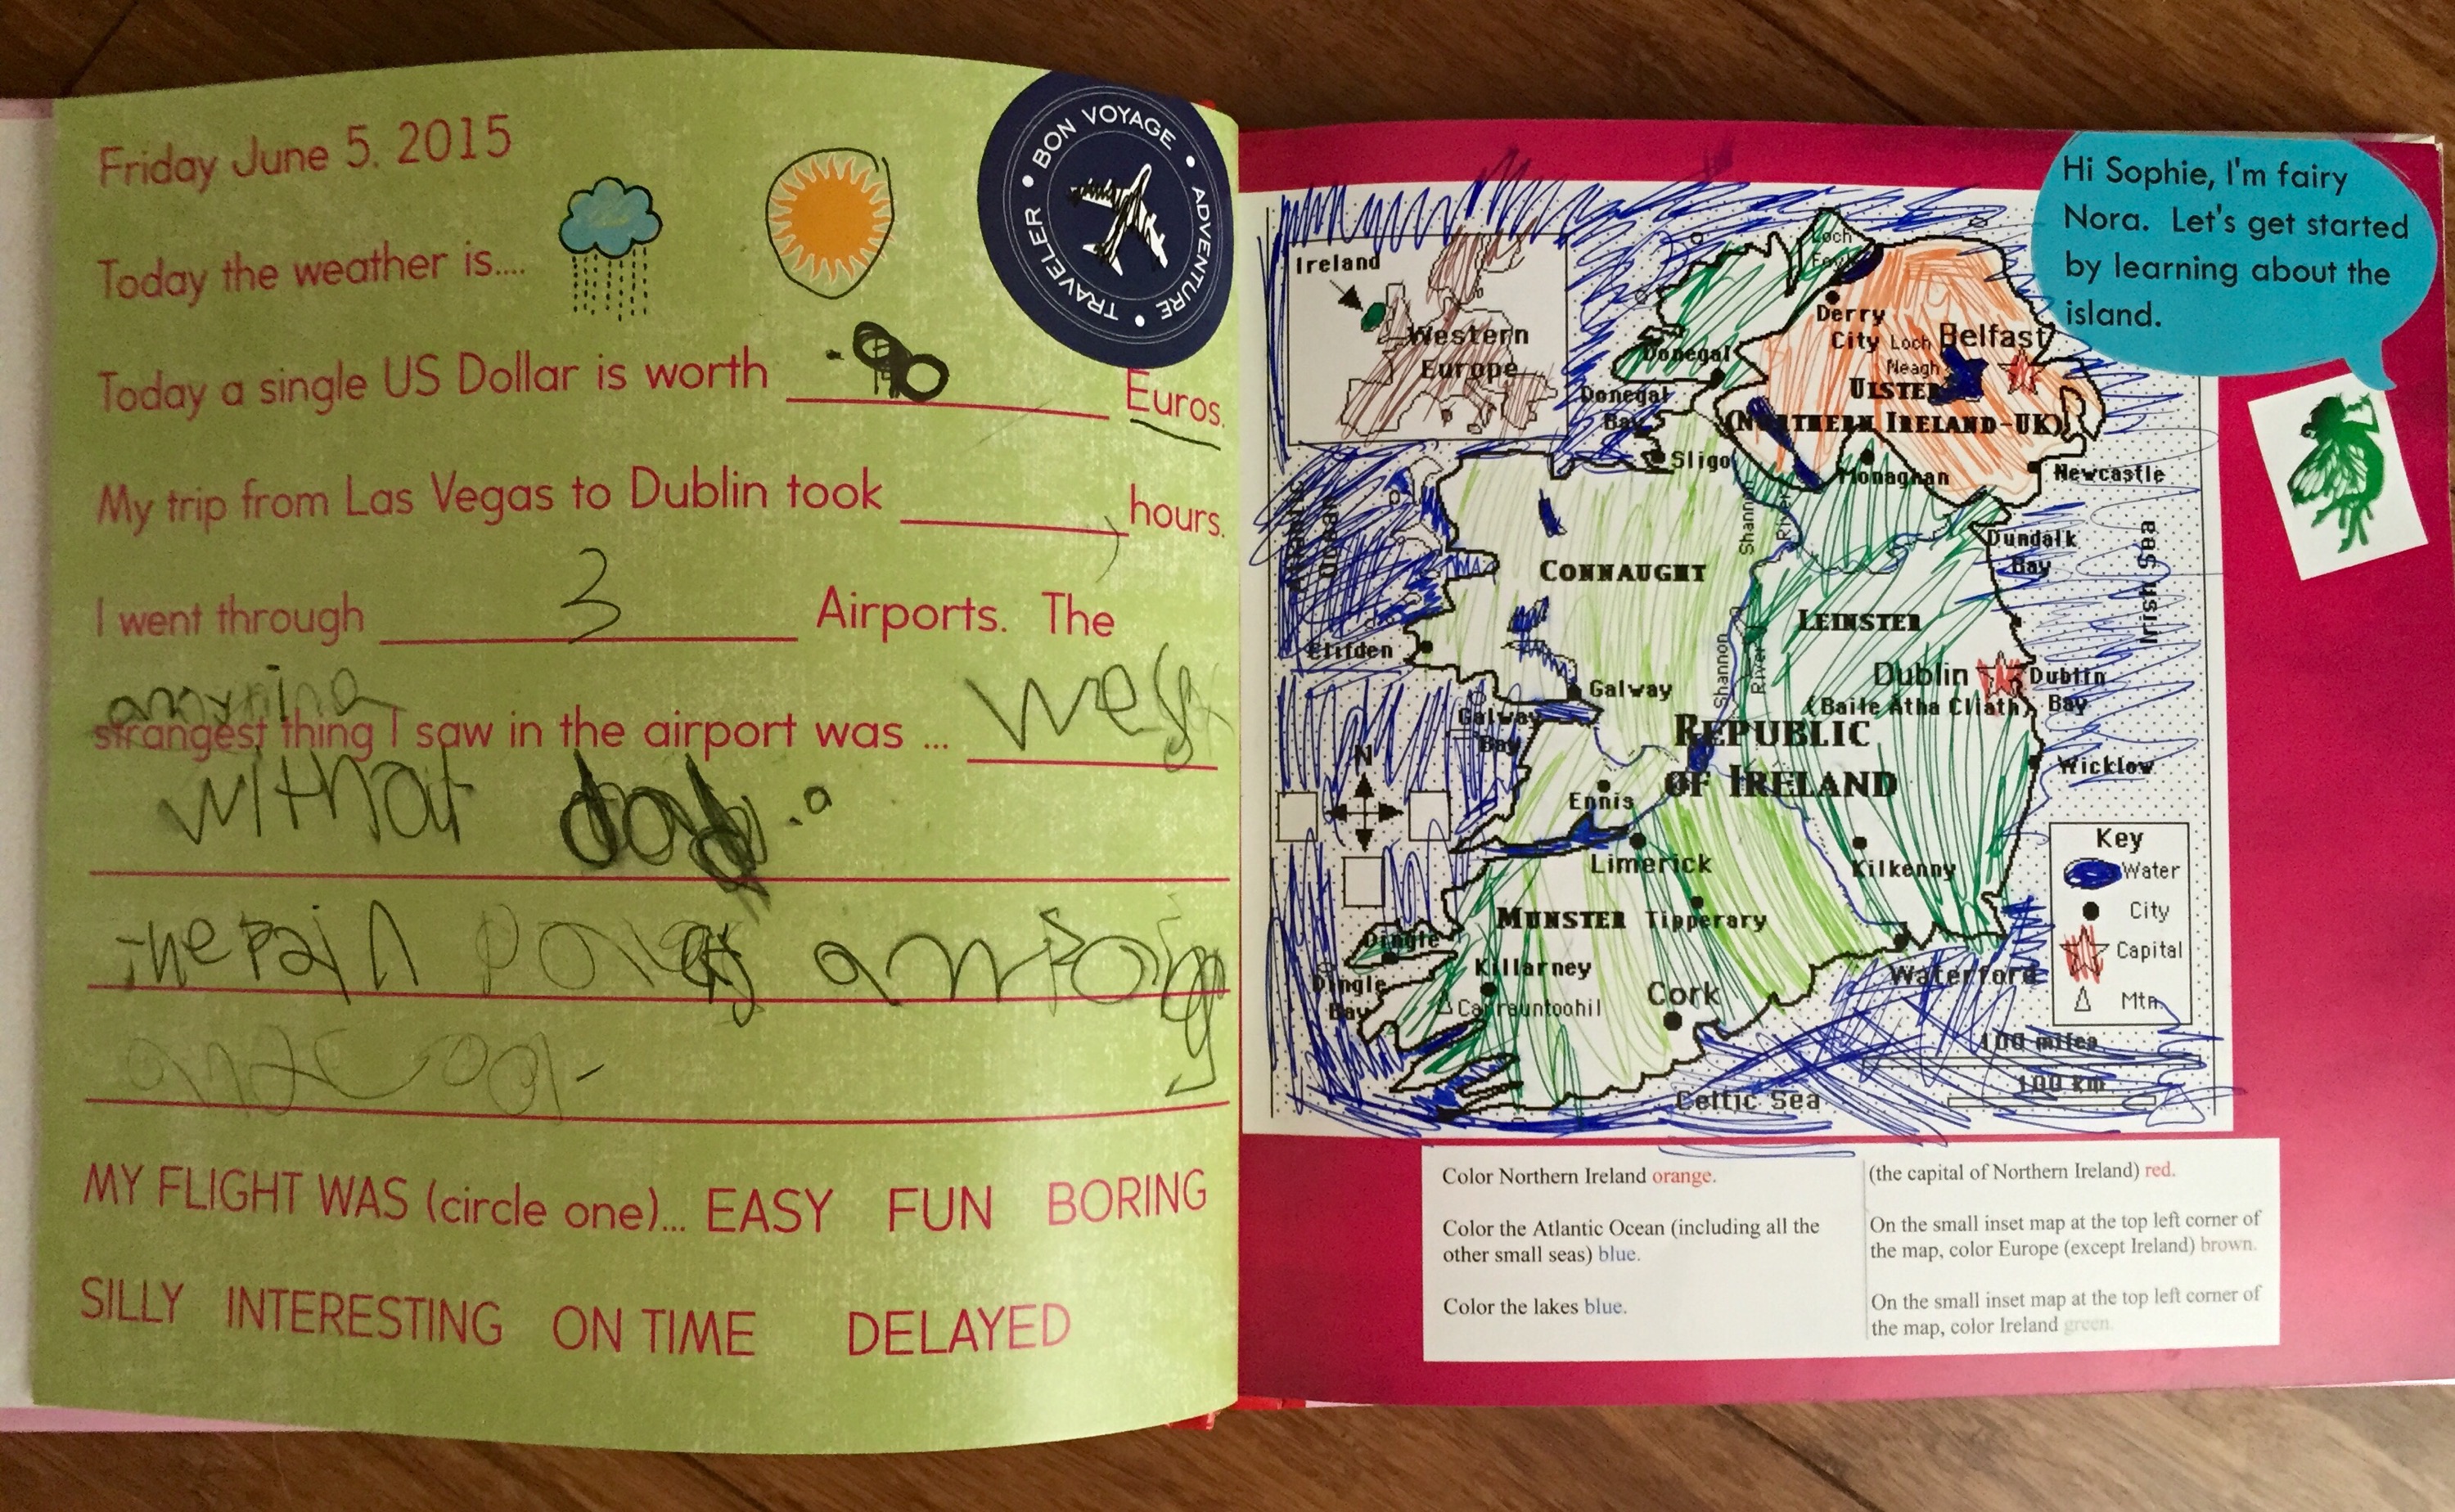 Friday June 5. 2015
Today the weather is....
BON VOYAGE • ADVENTURE • TRAVELER •
Today a single US Dollar is worth .90 Euros.
My trip from Las Vegas to Dublin took hours.
I went through 3 Airports. The
strangest thing I saw in the airport was ...
with dad.
and cool
MY FLIGHT WAS (circle one)... EASY FUN BORING
SILLY INTERESTING ON TIME DELAYED
Hi Sophie, I'm fairy
Nora. Let's get started
by learning about the
island.
Ireland
Western
Europe
Loch
Foyle
Derry
City
Belfast
Loch
Neagh
ULSTER
(NORTHERN IRELAND-UK)
Donegal
Donegal
Bay
Sligo
Monaghan
Newcastle
Atlantic
Ocean
Shannon
River
Dundalk
Bay
Irish Sea
CONNAUGHT
LEINSTER
Clifden
Shannon
River
Galway
Dublin
(Baile Atha Cliath)
Dublin
Bay
Galway
Bay
REPUBLIC
OF IRELAND
N
Wicklow
Ennis
Limerick
Kilkenny
MUNSTER
Tipperary
Dingle
Dingle
Bay
Killarney
Carrauntoohil
Cork
Waterford
Key
Water
City
Capital
Mtn
100 miles
100 km
Celtic Sea
Color Northern Ireland orange.
Color the Atlantic Ocean (including all the
other small seas) blue.
Color the lakes blue.
(the capital of Northern Ireland) red.
On the small inset map at the top left corner of
the map, color Europe (except Ireland) brown.
On the small inset map at the top left corner of
the map, color Ireland green.